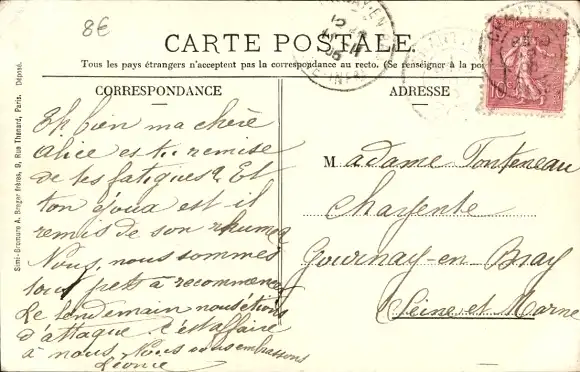 8€
CARTE POSTALE.
Tous les pays étrangers n'acceptent pas la correspondance au recto. (Se renseigner à la po
CORRESPONDANCE
Eh bien ma chère
Alice es tu remise
de tes fatigues? Et
ton est il
remis de son rhume
Nous, nous sommes
tous prêts à recommencer
Le lendemain nous étions
d'attaque. C'est affaire
à nous. Nous vous embrassons
Léonie
ADRESSE
Madame Fonteneau
Charpente
Gournay-en Bray
Seine et Marne
10
Simi-Bromure A. Breger frères, 9, Rue Thenard, Paris. Déposé.